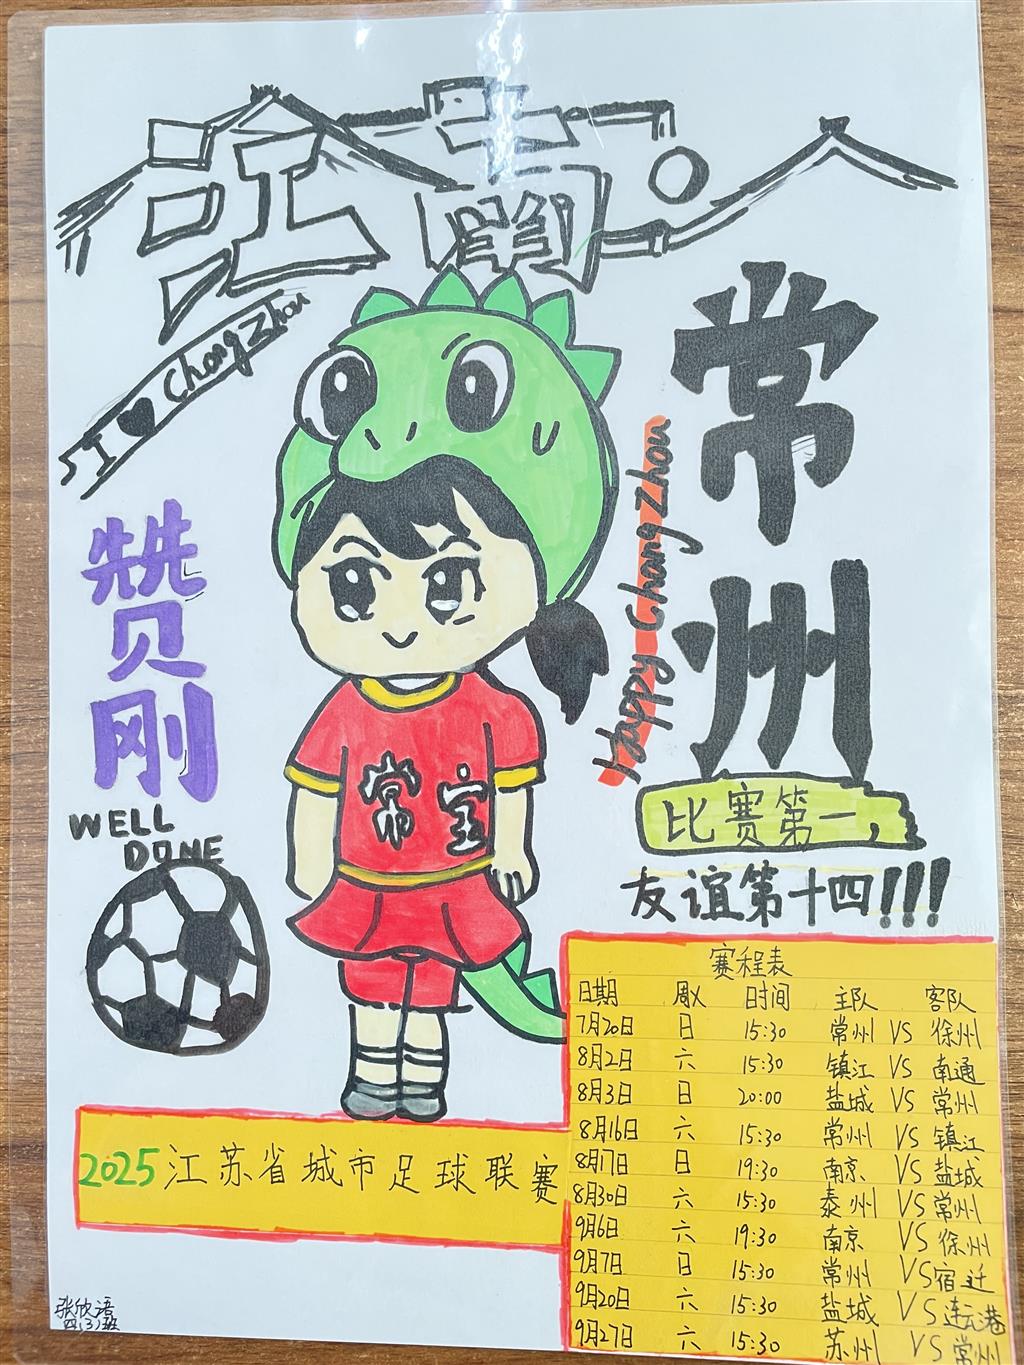 江南
I ♥ ChangZhou
常州
Happy ChangZhou
赞刚
WELL
DONE
常宝
比赛第一，
友谊第十四!!!
赛程表
日期 周X 时间 主队 客队
7月20日 日 15:30 常州 VS 徐州
8月2日 六 15:30 镇江 VS 南通
8月3日 日 20:00 盐城 VS 常州
8月16日 六 15:30 常州 VS 镇江
8月17日 日 19:30 南京 VS 盐城
8月30日 六 15:30 泰州 VS 常州
9月6日 六 19:30 南京 VS 徐州
9月7日 日 15:30 常州 VS 宿迁
9月20日 六 15:30 盐城 VS 连云港
9月27日 六 15:30 苏州 VS 常州
2025江苏省城市足球联赛
张欣语
四(3)班